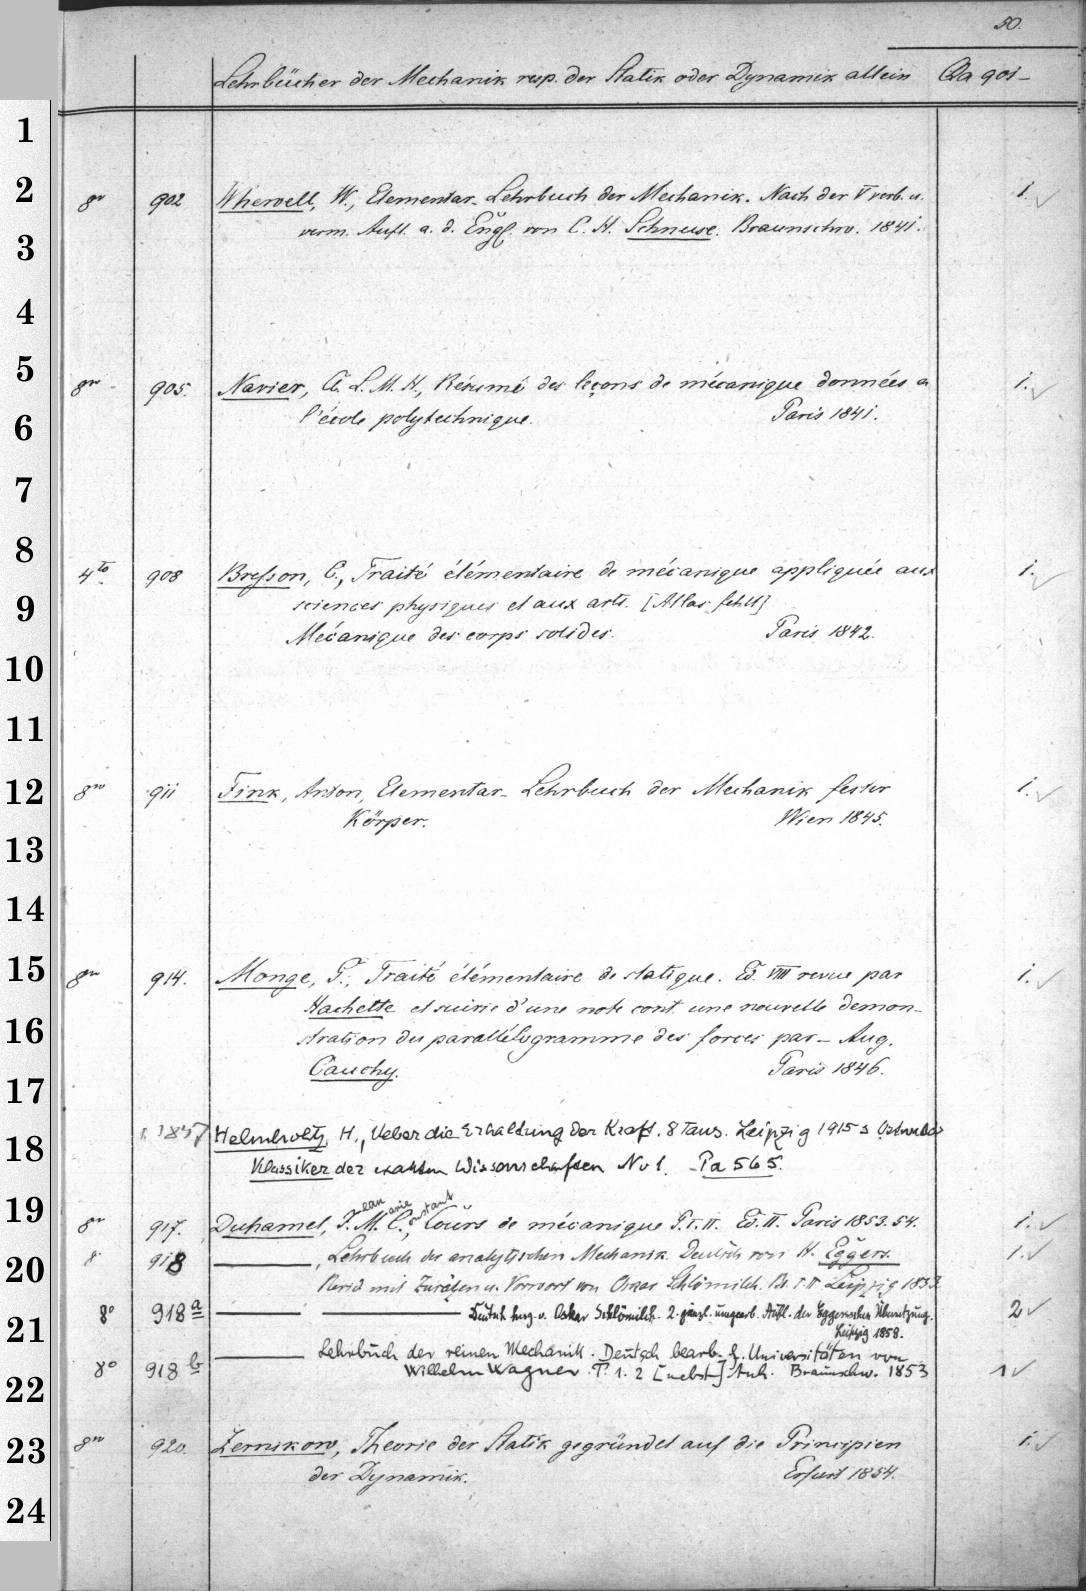 50.
Lehrbücher der Mechanik resp. der Statik oder Dynamik allein Qa 901-
1
2
8vo 902 Whewell, W., Elementar-Lehrbuch der Mechanik. Nach der V verb. u. 1. ✓
verm. Aufl. a. d. Engl. von C. H. Schnuse. Braunschw. 1841.
3
4
5
8vo 905. Navier, L. M. H., Résumé des leçons de mécanique données a 1. ✓
l'école polytechnique. Paris 1841.
6
7
8
4to 908 Bresson, C., Traité élémentaire de mécanique appliquée aux 1. ✓
sciences physiques et aux arts. [Atlas fehlt]
9
Mécanique des corps solides. Paris 1842.
10
11
12
8vo 911 Fink, Anton, Elementar-Lehrbuch der Mechanik fester 1. ✓
Körper. Wien 1845.
13
14
15
8vo 914. Monge, G., Traité élémentaire de statique. Ed. VIII revue par 1. ✓
Hachette et suivie d'une note cont. une nouvelle demon-
16
stration du parallélogramme des forces par Aug.
Cauchy. Paris 1846.
17
1847 Helmholtz, H., Ueber die Erhaltung der Kraft. 8 Taus. Leipzig 1915 = Ostwalds
18
Klassiker der exakten Wissenschaften No 1. Pa 565.
19
8vo 917. Duhamel, J. M. C., Cours de mécanique P. I. II. Ed. II. Paris 1853. 54. 1. ✓
Jean Marie Constant
8 918 ———, Lehrbuch der analytischen Mechanik. Deutsch von H. Eggers. 1. ✓
20
Revid mit Zusätzen u. Vorwort von Oscar Schlömilch. Bd. I. II Leipzig 1853.
8o 918a ——— ——— Deutsch hrsg. v. Oskar Schlömilch. 2. gänzl. umgearb. Aufl. der Eggersschen Übersetzung. 2 ✓
21
Leipzig 1858.
8o 918b ——— Lehrbuch der reinen Mechanik. Deutsch bearb. f. Universitäten von
Wilhelm Wagner. T. 1. 2 [nebst] Anh. Braunschw. 1853 1 ✓
22
23
8vo 920. Zernikow, Theorie der Statik gegründet auf die Principien 1. ✓
der Dynamik. Erfurt 1854.
24